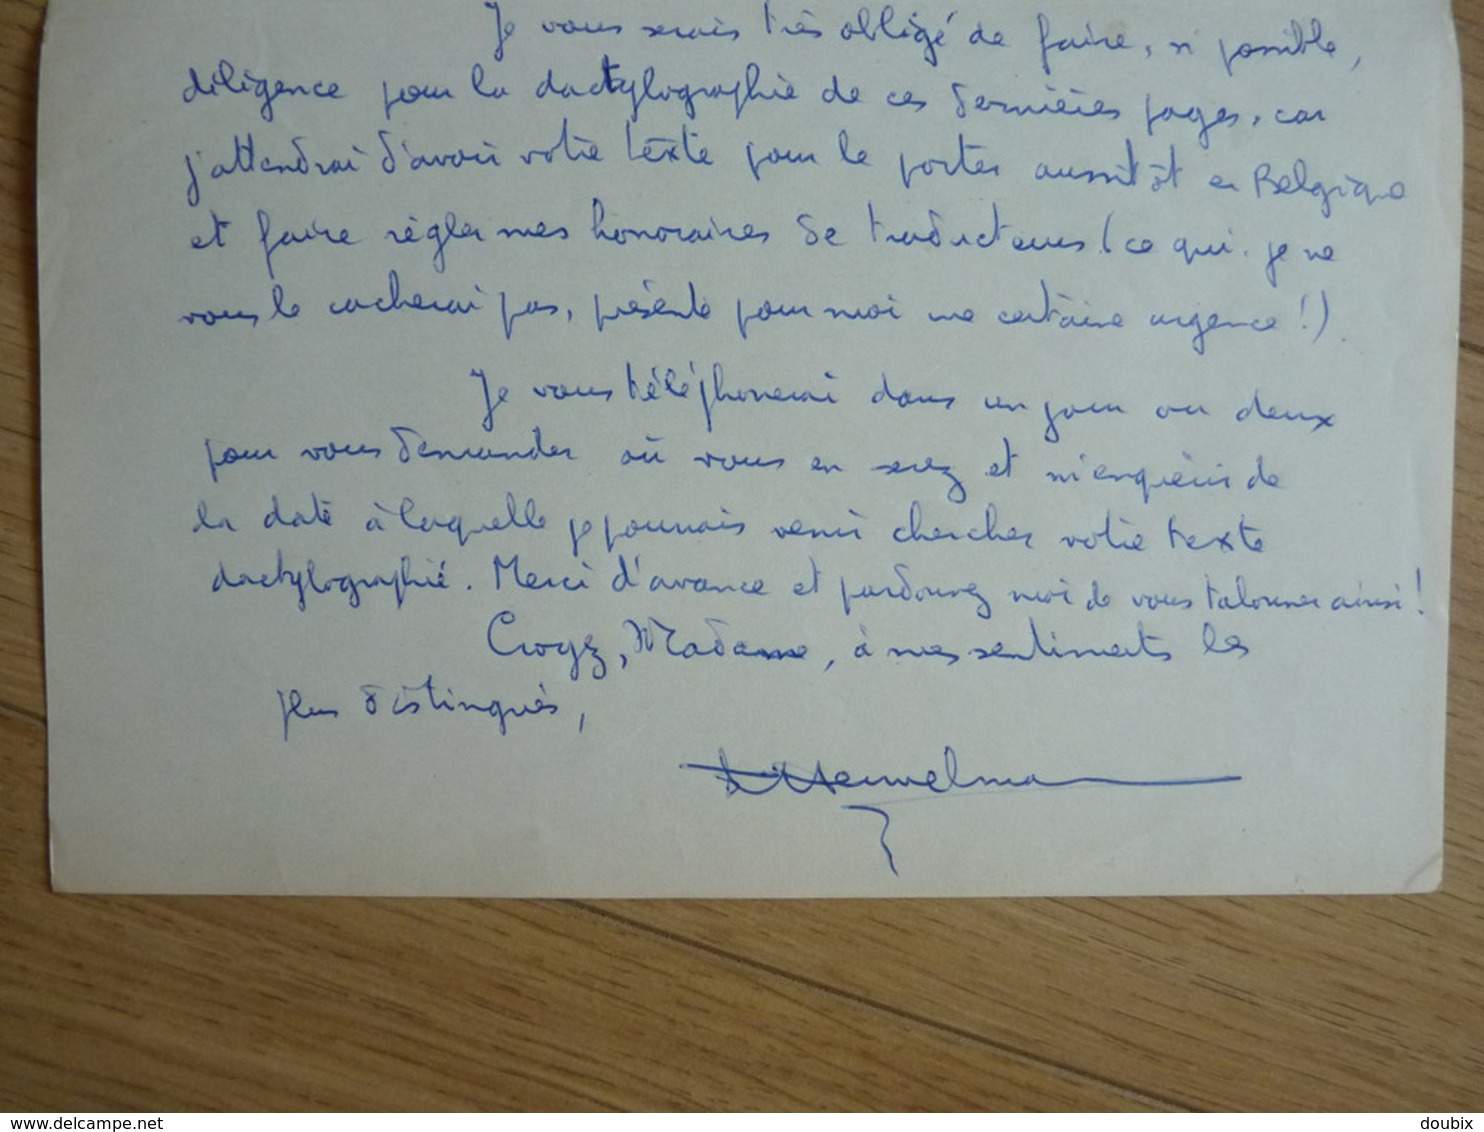 Je vous serais très obligé de faire, si possible,
diligence pour la dactylographie de ces dernières pages, car
j'attendrai d'avoir votre texte pour le porter aussitôt en Belgique
et faire régler mes honoraires de traducteurs (ce qui, je ne
vous le cacherai pas, présente pour moi une certaine urgence !)
Je vous téléphonerai dans un jour ou deux
pour vous demander où vous en serez et m'enquérir de
la date à laquelle je pourrais venir chercher votre texte
dactylographié. Merci d'avance et pardonnez moi de vous talonner ainsi !
Croyez, Madame, à mes sentiments les
plus distingués,
Heuvelmans
www.delcampe.net
doubix